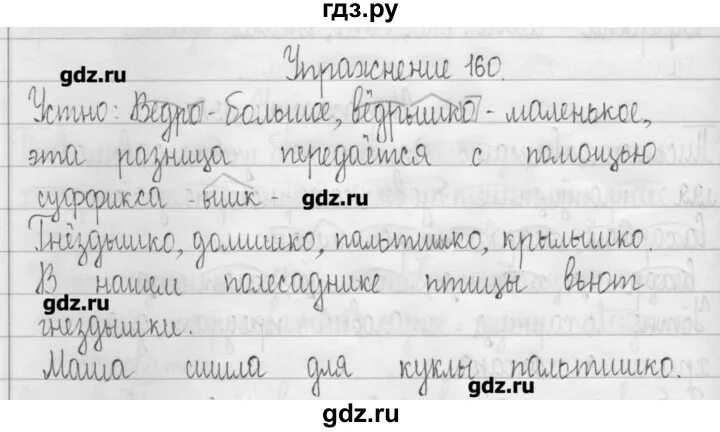 гдз.ру
Упражнение 160.
gdz.ru
Устно: Ведро - большое, вёдрышко - маленькое,
эта разница передаётся с помощью
суффикса -ышк-
gdz.ru
Гнёздышко, домишко, пальтишко, крылышко.
В нашем полесаднике птицы вьют
gdz.ru
гнездышки.
Маша сшила для куклы пальтишко.
gdz.ru
gdz.ru